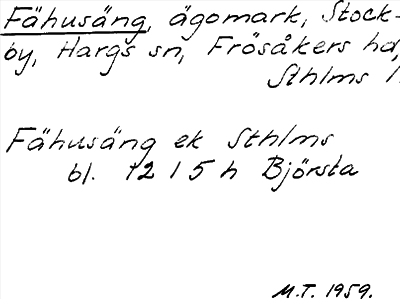 Fähusäng, ägomark, Stock-
by, Hargs sn, Frösåkers hd,
Sthlms l.
Fähusäng ek Sthlms
bl. 12 I 5 h Björsta
M.T. 1959.